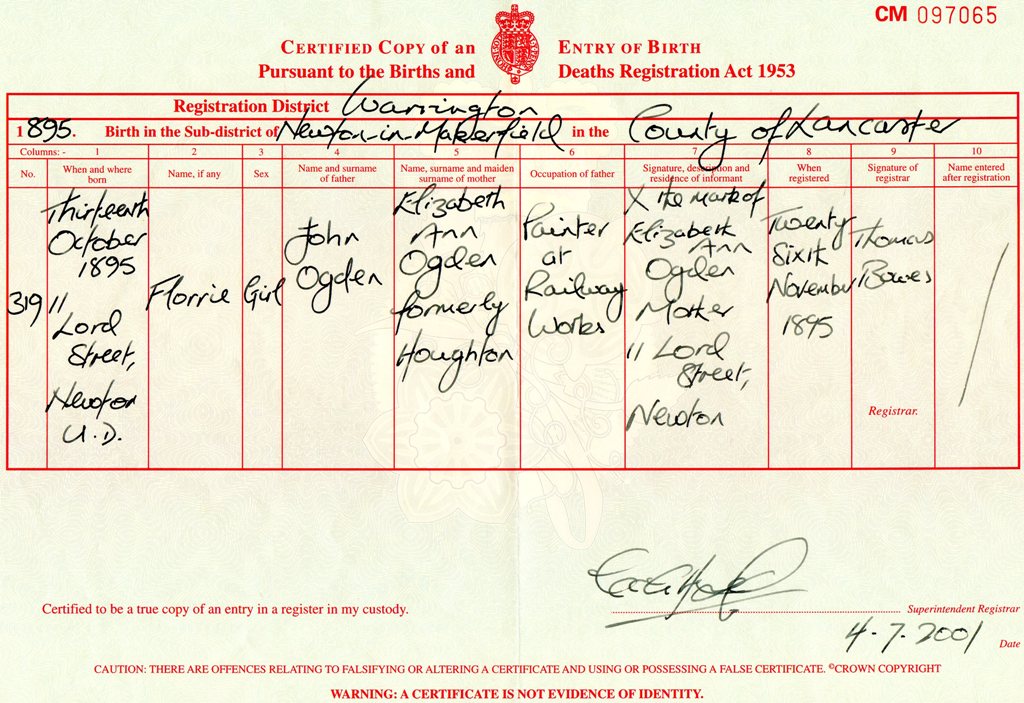 CM 097065
CERTIFIED COPY OF AN ENTRY OF BIRTH
Pursuant to the Births and Deaths Registration Act 1953
Registration District Warrington
1895. Birth in the Sub-district of Newton-in-Makerfield in the County of Lancaster
Columns: - 1 2 3 4 5 6 7 8 9 10
No.
When and where
born
Name, if any
Sex
Name and surname
of father
Name, surname and maiden
surname of mother
Occupation of father
Signature, description and
residence of informant
When
registered
Signature of
registrar
Name entered
after registration
319
Thirteenth
October
1895
11
Lord
Street,
Newton
U.D.
Florrie
Girl
John
Ogden
Elizabeth
Ann
Ogden
formerly
Houghton
Painter
at
Railway
Works
X the mark of
Elizabeth
Ann
Ogden
Mother
11 Lord
Street,
Newton
Twenty
Sixth
November
1895
Thomas
Bowes
Registrar.
Certified to be a true copy of an entry in a register in my custody.
Superintendent Registrar
4.7.2001 Date
CAUTION: THERE ARE OFFENCES RELATING TO FALSIFYING OR ALTERING A CERTIFICATE AND USING OR POSSESSING A FALSE CERTIFICATE. ©CROWN COPYRIGHT
WARNING: A CERTIFICATE IS NOT EVIDENCE OF IDENTITY.